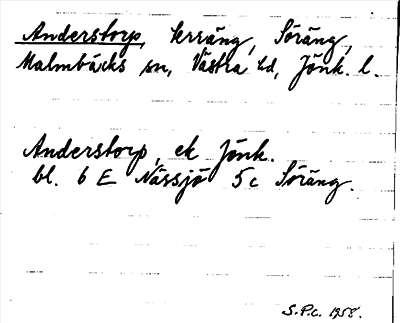 Anderstorp, terräng, Söräng,
Malmbäcks sn, Västra hd, Jönk. l.
Anderstorp, ek Jönk.
bl. 6 E Nässjö 5c Söräng.
S.P.c. 1958.